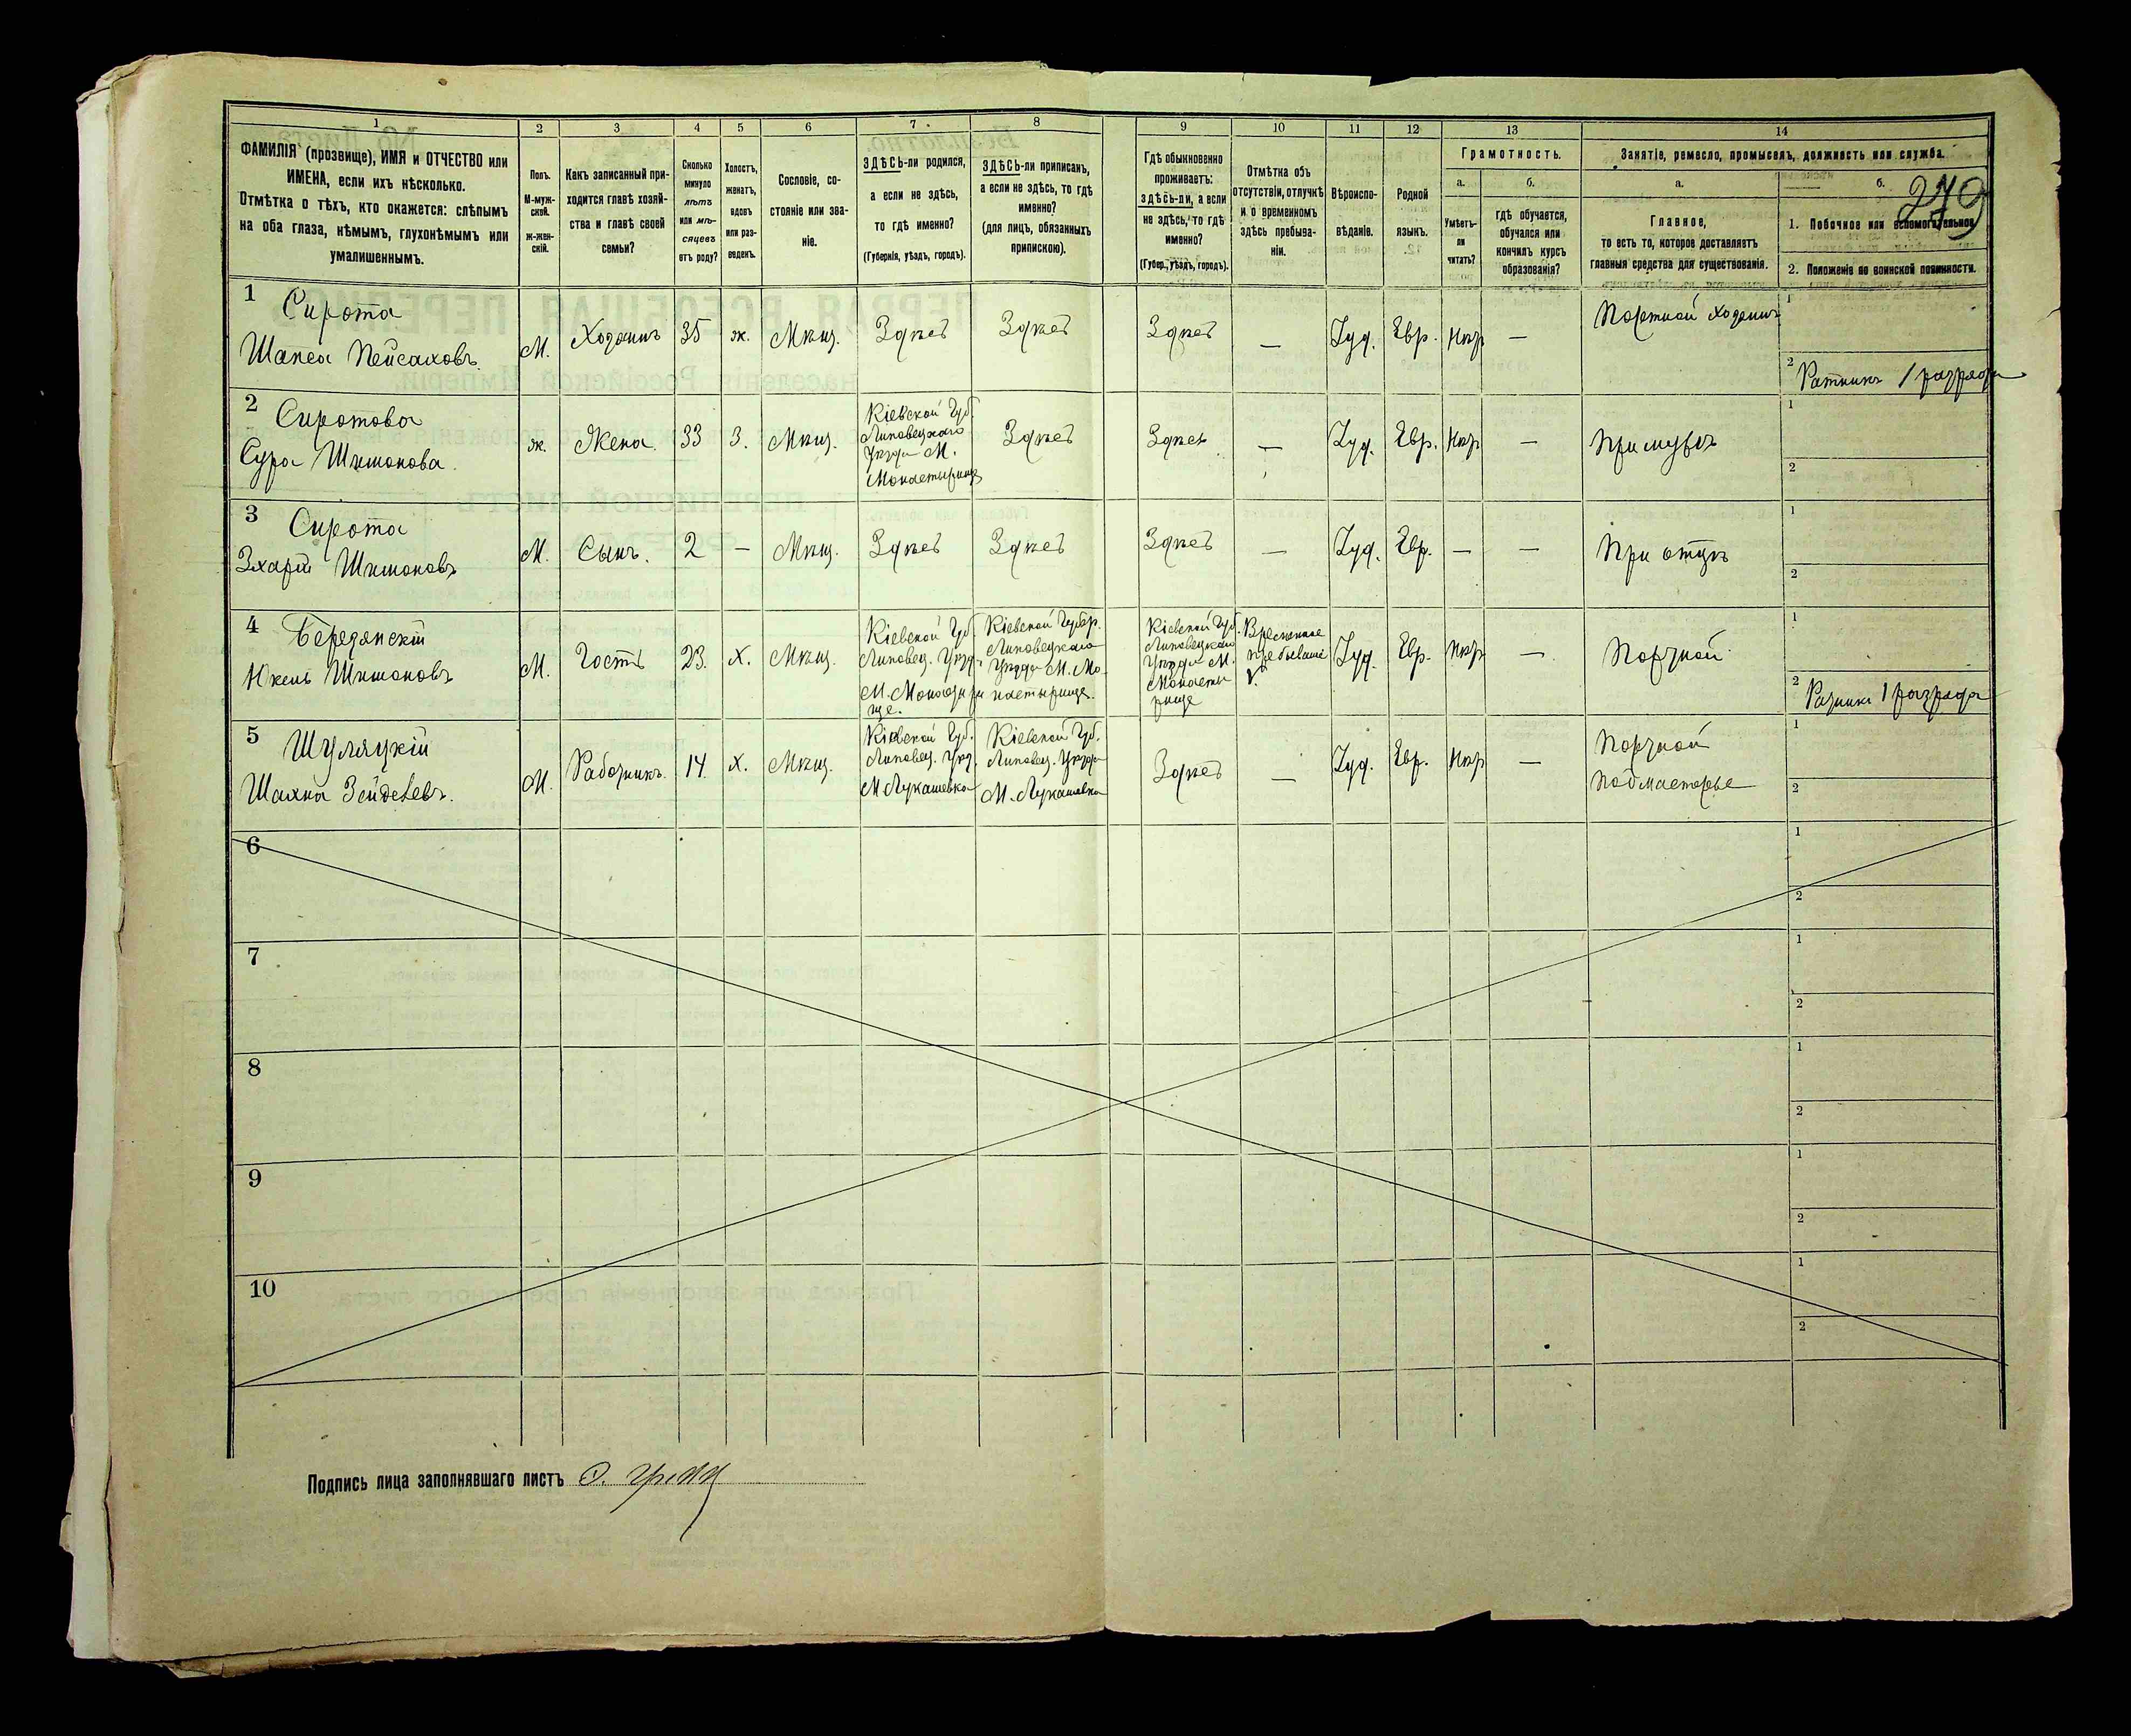 1 2 3 4 5 6 7 8 9 10 11 12 13 14
ФАМИЛІЯ (прозвище), ИМЯ и ОТЧЕСТВО или
ИМЕНА, если ихъ нѣсколько.
Отмѣтка о тѣхъ, кто окажется: слѣпымъ
на оба глаза, нѣмымъ, глухонѣмымъ или
умалишеннымъ.
Полъ.
М-муж-
ской.
Ж-жен-
скій.
Какъ записанный при-
ходится главѣ хозяй-
ства и главѣ своей
семьи?
Сколько
минуло
лѣтъ
или мѣ-
сяцевъ
отъ роду?
Холостъ,
женатъ,
вдовъ
или раз-
веденъ.
Сословіе, со-
стояніе или зва-
ніе.
ЗДѢСЬ-ли родился,
а если не здѣсь,
то гдѣ именно?
(Губернія, уѣздъ, городъ).
ЗДѢСЬ-ли приписанъ,
а если не здѣсь, то гдѣ
именно?
(для лицъ, обязанныхъ
припискою).
Гдѣ обыкновенно
проживаетъ:
здѣсь-ли, а если
не здѣсь, то гдѣ
именно?
(Губер., уѣздъ, городъ).
Отмѣтка объ
отсутствіи, отлучкѣ
и о временномъ
здѣсь пребыва-
ніи.
Вѣроиспо-
вѣданіе.
Родной
языкъ.
Грамотность.
а.
Умѣетъ-
ли
читать?
б.
гдѣ обучается,
обучался или
кончилъ курсъ
образованія?
Занятіе, ремесло, промыселъ, должность или служба.
а.
Главное,
то есть то, которое доставляетъ
главныя средства для существованія.
б.
1. Побочное или вспомогательное.
2. Положеніе по воинской повинности.
1 Сирота
Пейсаховъ. М. Хозяинъ 35 ж. Мѣщ. Здѣсь Здѣсь Здѣсь — Іуд. Евр. Нѣт — Портной хозяинъ
1
2 Ратникъ 1 разряда
2 Сиротова
Сура Шимонова. ж. Жена. 33 З. Мѣщ. Кіевской Губ.
Липовецкаго
Уѣзда М.
Монастырище
Здѣсь Здѣсь — Іуд. Евр. Нѣт — При мужѣ
1
2
3 Сирота
Шимоновъ М. Сынъ. 2 — Мѣщ. Здѣсь Здѣсь Здѣсь — Іуд. Евр. — — При отцѣ
1
2
4 Береданскій
Шимоновъ М. Гость 23. х. Мѣщ. Кіевской Губ.
Липовец. Уѣзд.
М. Монастыри
ще.
Кіевской Губер.
Липовецкаго
Уѣзда М. Мо
настырище.
Кіевской Губ.
Липовецкаго
Уѣзда М.
Монасты
рище
Временное
пребываніе
Іуд. Евр. Нѣт — Портной
1
2 Ратникъ 1 разряда
5 Шуляцкій
Зейделевъ. М. Работникъ. 14. х. Мѣщ. Кіевской Губ.
Липовец. Уѣзд.
М Лукашевка
Кіевской Губ.
Липовец. Уѣзда
М. Лукашевка
Здѣсь — Іуд. Евр. Нѣт — Портной
подмастерье
1
2
6
1
2
7
1
2
8
1
2
9
1
2
10
1
2
Подпись лица заполнявшаго листъ